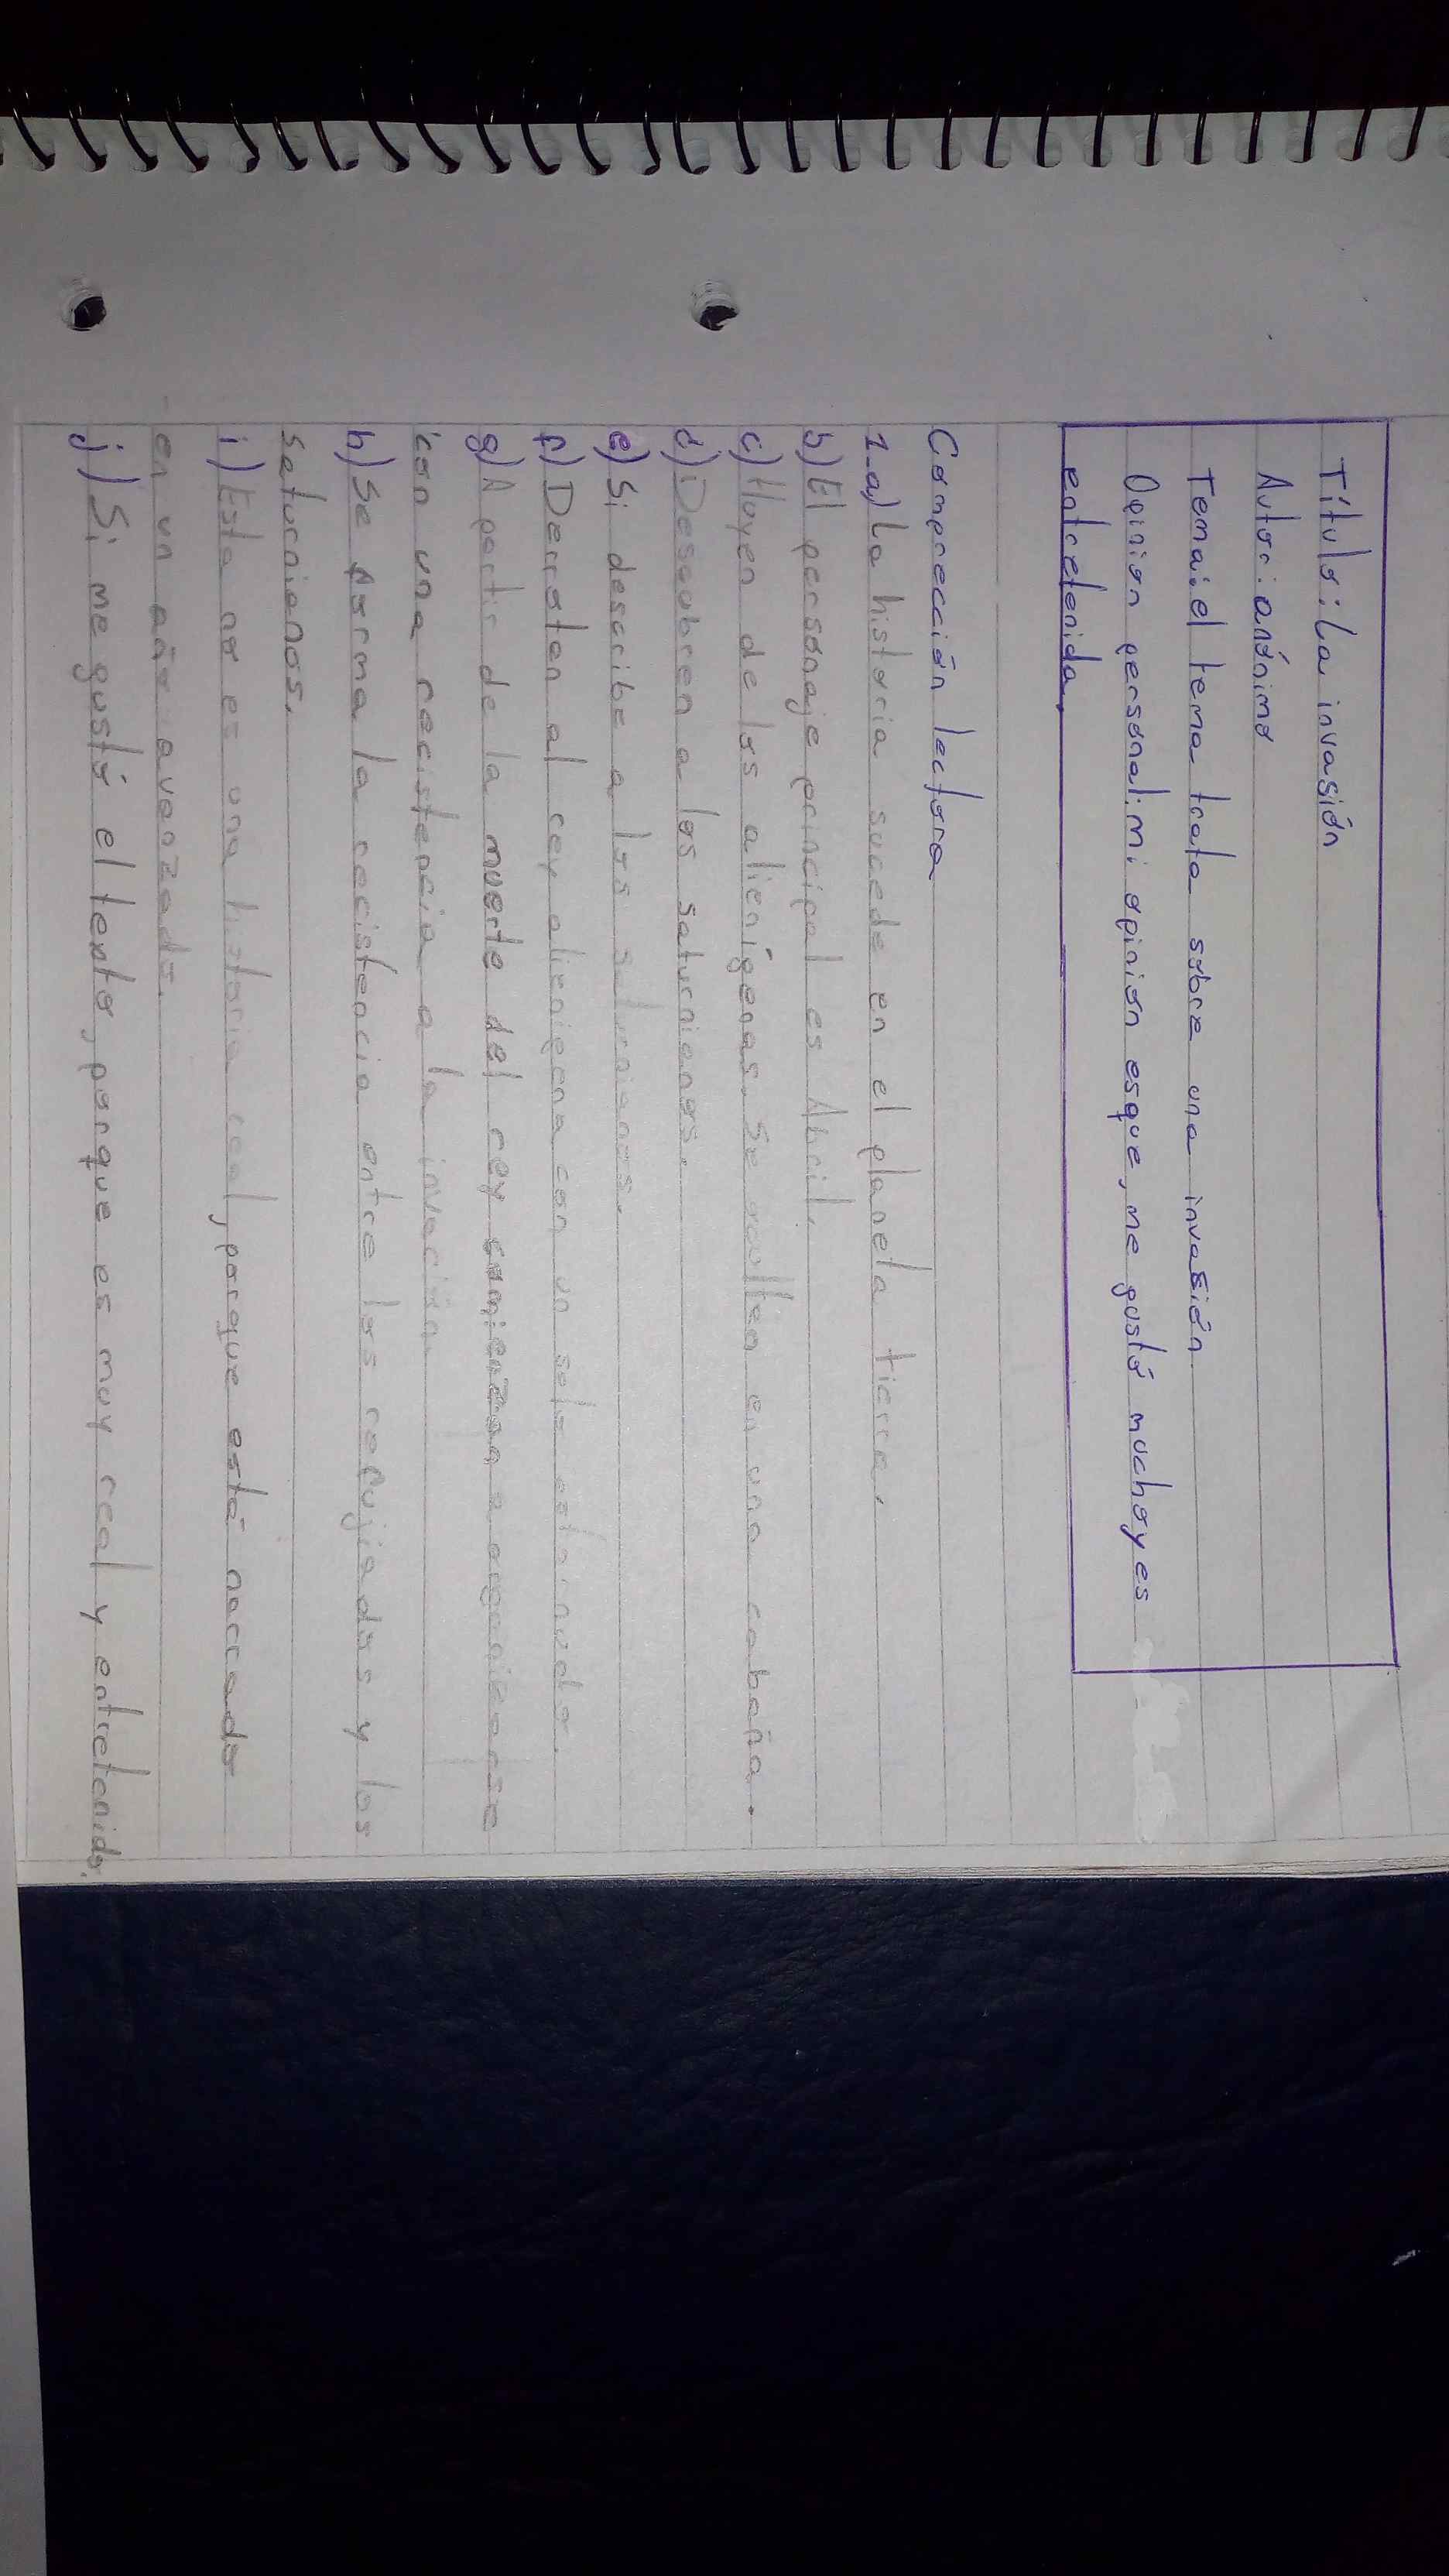 Título: La invasión
Autor: anónimo
Tema: el tema trata sobre una invasión
Opinion personal: mi opinion esque, me gustó mucho y es
entretenida.
Comprección lectora
1-a) La historia sucede en el planeta tierra.
b) El personaje principal es Abril.
c) Huyen de los alienígenas. Se ocultan en una cabaña.
d) Descubren a los saturnianos.
e) Si describe a los saturnianos.
f) Derroten al rey alienigena con un solo estornudo.
g) A partir de la muerte del rey comienzan a organizarse
con una recistencia a la invación.
h) Se forma la recistencia entre los refujiados y los
saturnianos.
i) Esta no es una historia real, porque está narrado
en un año avanzado.
j) Si me gustó el texto, porque es muy real y entretenido.